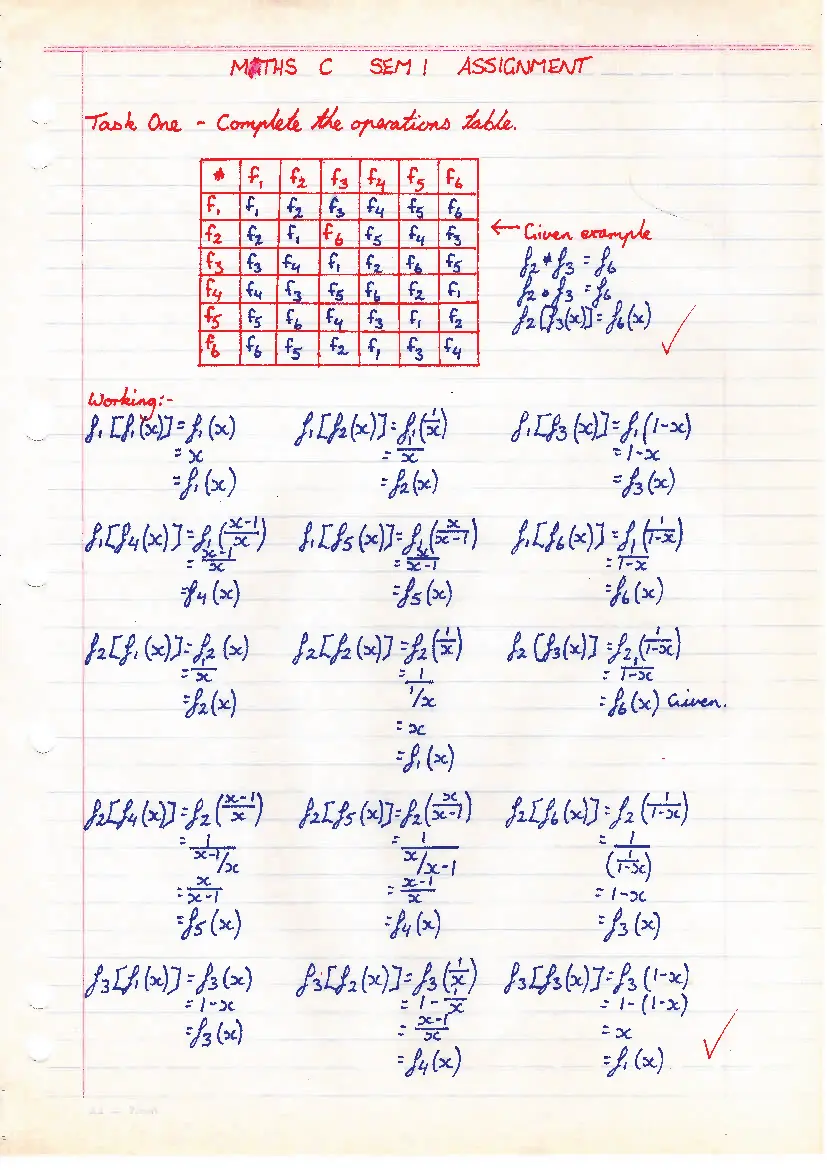 MATHS C SEM 1 ASSIGNMENT
Task One - Complete the operations table.
* f₁ f₂ f₃ f₄ f₅ f₆
f₁ f₁ f₂ f₃ f₄ f₅ f₆
f₂ f₂ f₁ f₆ f₅ f₄ f₃
f₃ f₃ f₄ f₁ f₂ f₆ f₅
f₄ f₄ f₃ f₅ f₆ f₂ f₁
f₅ f₅ f₆ f₄ f₃ f₁ f₂
f₆ f₆ f₅ f₂ f₁ f₃ f₄
← Given example
f₂ * f₃ = f₆
f₂ • f₃ = f₆
f₂[f₃(x)] = f₆(x)
✓
Working:-
f₁[f₁(x)] = f₁(x)
= x
= f₁(x)
f₁[f₂(x)] = f₁(1/x)
= 1/x
= f₂(x)
f₁[f₃(x)] = f₁(1-x)
= 1-x
= f₃(x)
f₁[f₄(x)] = f₁((x-1)/x)
= (x-1)/x
= f₄(x)
f₁[f₅(x)] = f₁(x/(x-1))
= x/(x-1)
= f₅(x)
f₁[f₆(x)] = f₁(1/(1-x))
= 1/(1-x)
= f₆(x)
f₂[f₁(x)] = f₂(x)
= 1/x
= f₂(x)
f₂[f₂(x)] = f₂(1/x)
= 1/(1/x)
= x
= f₁(x)
f₂[f₃(x)] = f₂(1/(1-x))
= 1/(1-x)
= f₆(x) Given.
f₂[f₄(x)] = f₂((x-1)/x)
= 1/((x-1)/x)
= x/(x-1)
= f₅(x)
f₂[f₅(x)] = f₂(x/(x-1))
= 1/(x/(x-1))
= (x-1)/x
= f₄(x)
f₂[f₆(x)] = f₂(1/(1-x))
= 1/(1/(1-x))
= 1-x
= f₃(x)
f₃[f₁(x)] = f₃(x)
= 1-x
= f₃(x)
f₃[f₂(x)] = f₃(1/x)
= 1 - 1/x
= (x-1)/x
= f₄(x)
f₃[f₃(x)] = f₃(1-x)
= 1-(1-x)
= x
= f₁(x)
✓